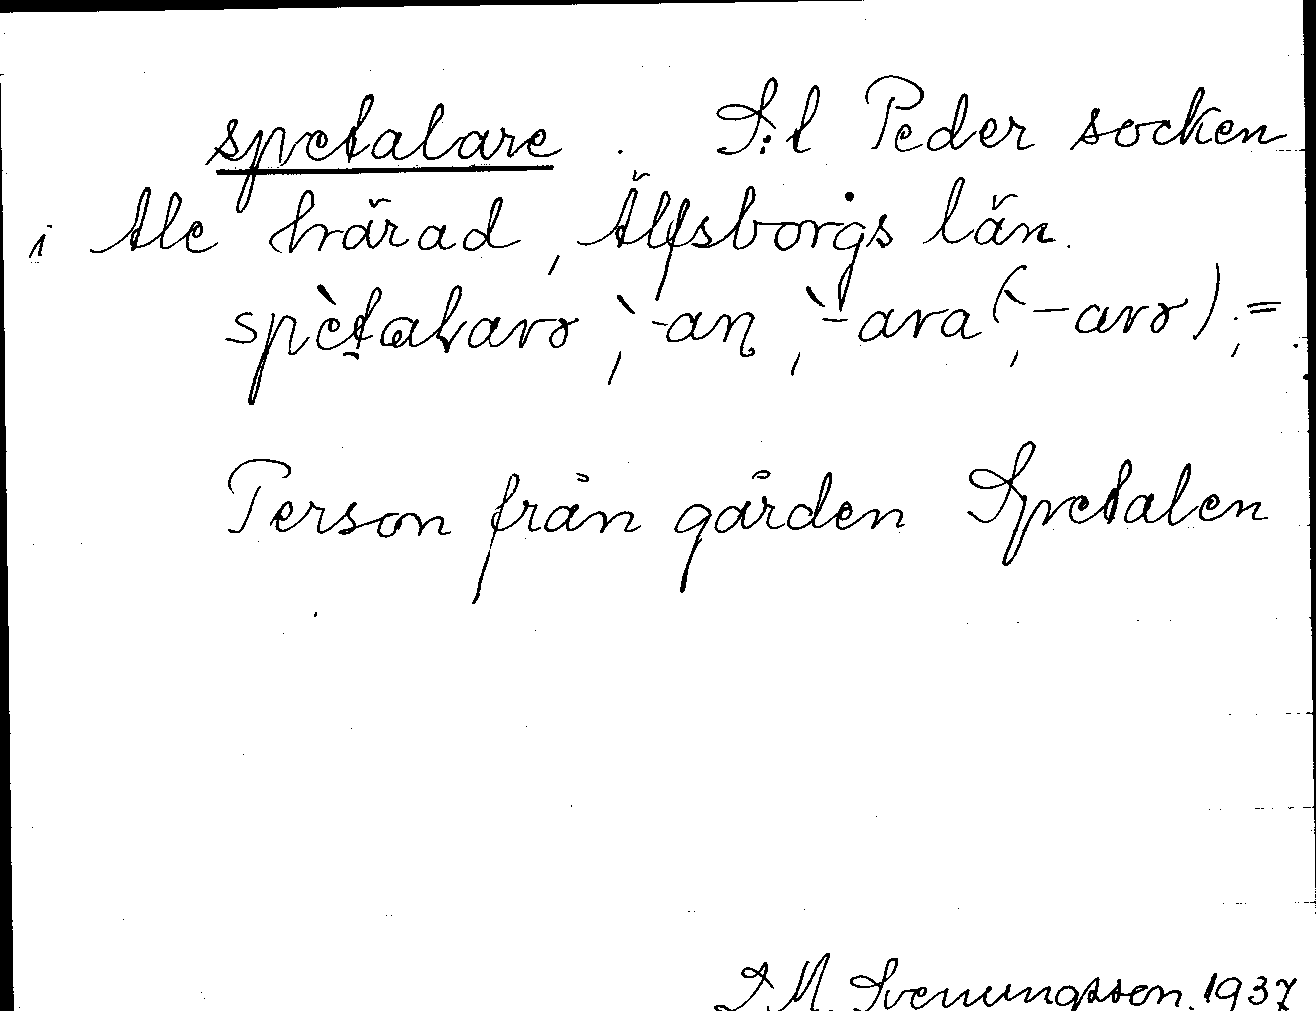 spetalare. S:t Peder socken
i Ale härad, Älfsborgs län.
spètalarə, `-an, `-ara (`-arə), =
Person från gården Spetalen
S. M. Svenungsson. 1937